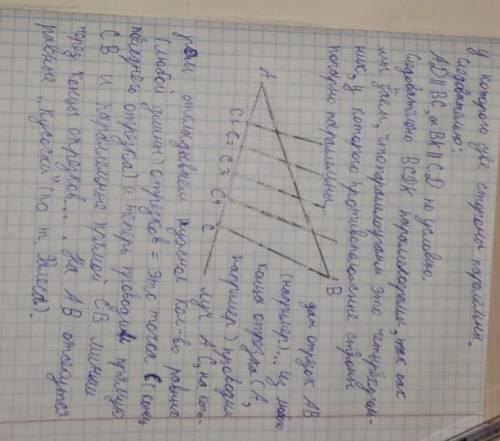 у которого две стороны параллельн.
Следовательно:
AD∥BC, а BK∥CD по условию.
Следовательно BCDK параллелограмм, так как
мы знаем, что параллелограмм это четырёхуголь-
ник, у которого противоположные стороны
попарно параллельны.
A
C1
C2
C3
C4
C
B
дан отрезок AB
(например)... Из любого
конца отрезка (A,
например) проводим
луч AC, на кото-
ром откладываем нужное кол-во равных
(любой длины) отрезков = это точка C (конец
последнего отрезка) и теперь проводим прямую
CB и параллельные прямой CB линии
через концы отрезков... На AB отсекутся
равные "кусочки" (по т. Фалеса).